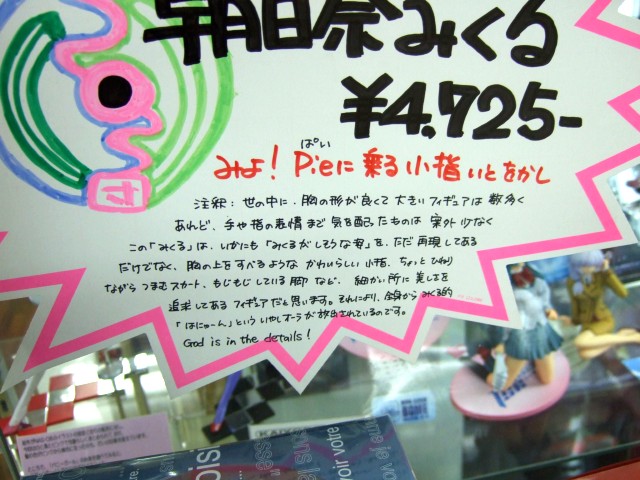 朝日奈みくる
¥4,725-
ぱい
みよ! Pieに乗る小指いとをかし
注釈:世の中に、胸の形が良くて大きいフィギュアは数多く
あれど、手や指の表情まで気を配ったものは案外少なく
この「みくる」は、いかにも「みくるがしそうな姿」を、ただ再現してある
だけでなく、胸の上をすべるようなかわいらしい小指、ちょっとひねり
ながらつまむスカート、もじもじしている脚など、細かい所に美しさを
追求してあるフィギュアだと思います。それにより、全身からみくる的
「はにゃーん」といういやしオーラが放出されているのです。
God is in the details!